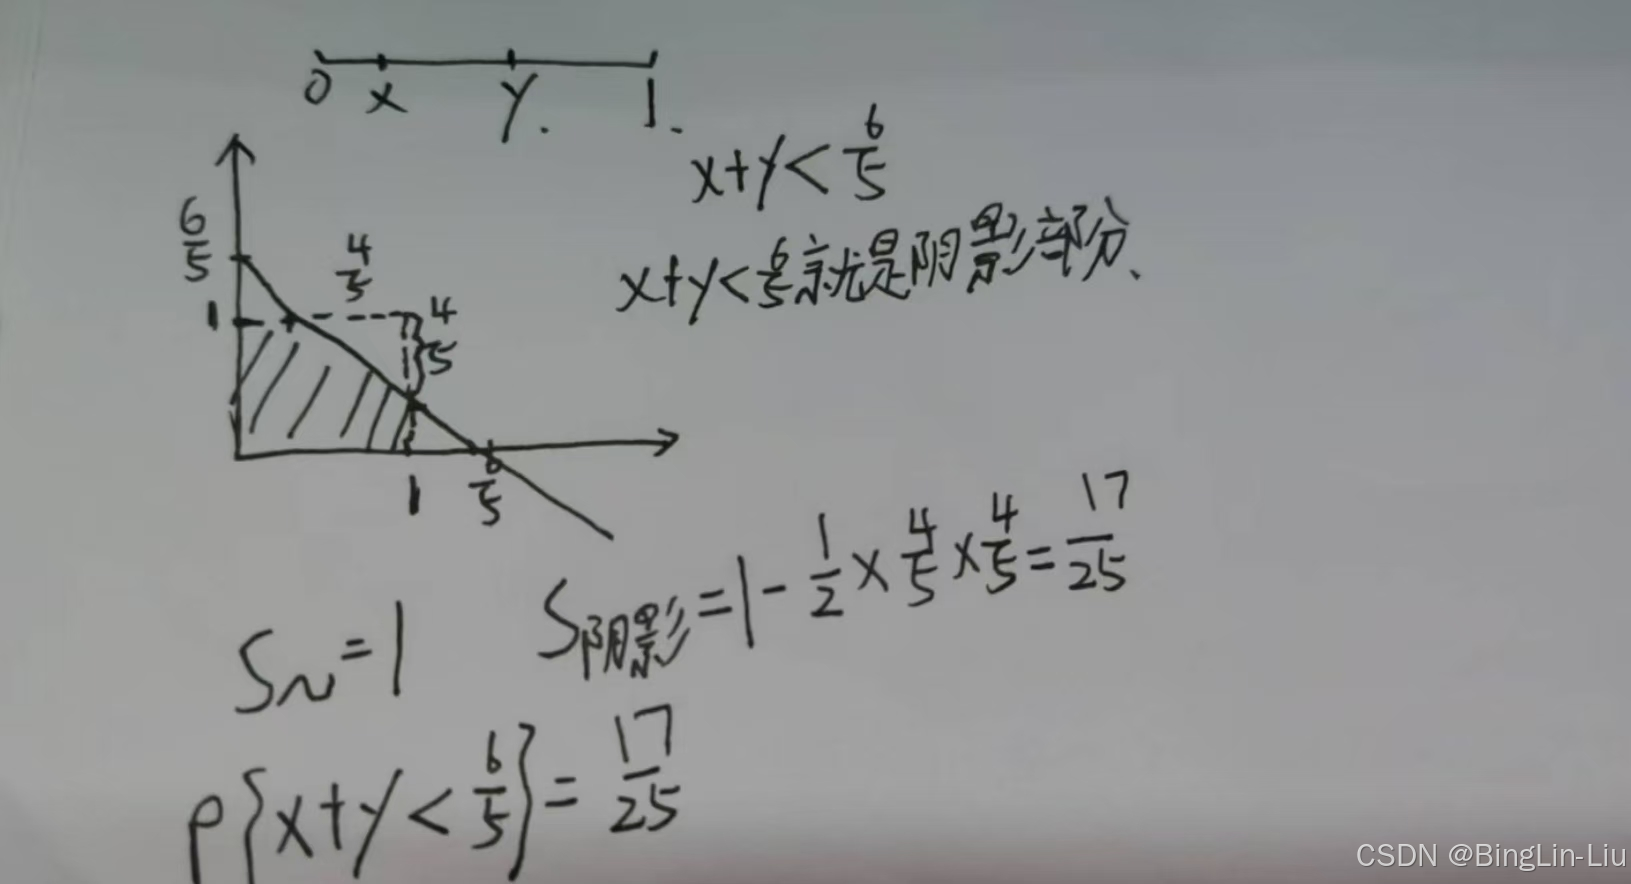 0 x y. 1.
x+y<6/5
6/5
4/5
x+y<6/5就是阴影部分、
1
4/5
1 6/5
S阴影=1-1/2×4/5×4/5=17/25
S~=1
P{x+y<6/5}=17/25
CSDN @BingLin-Liu